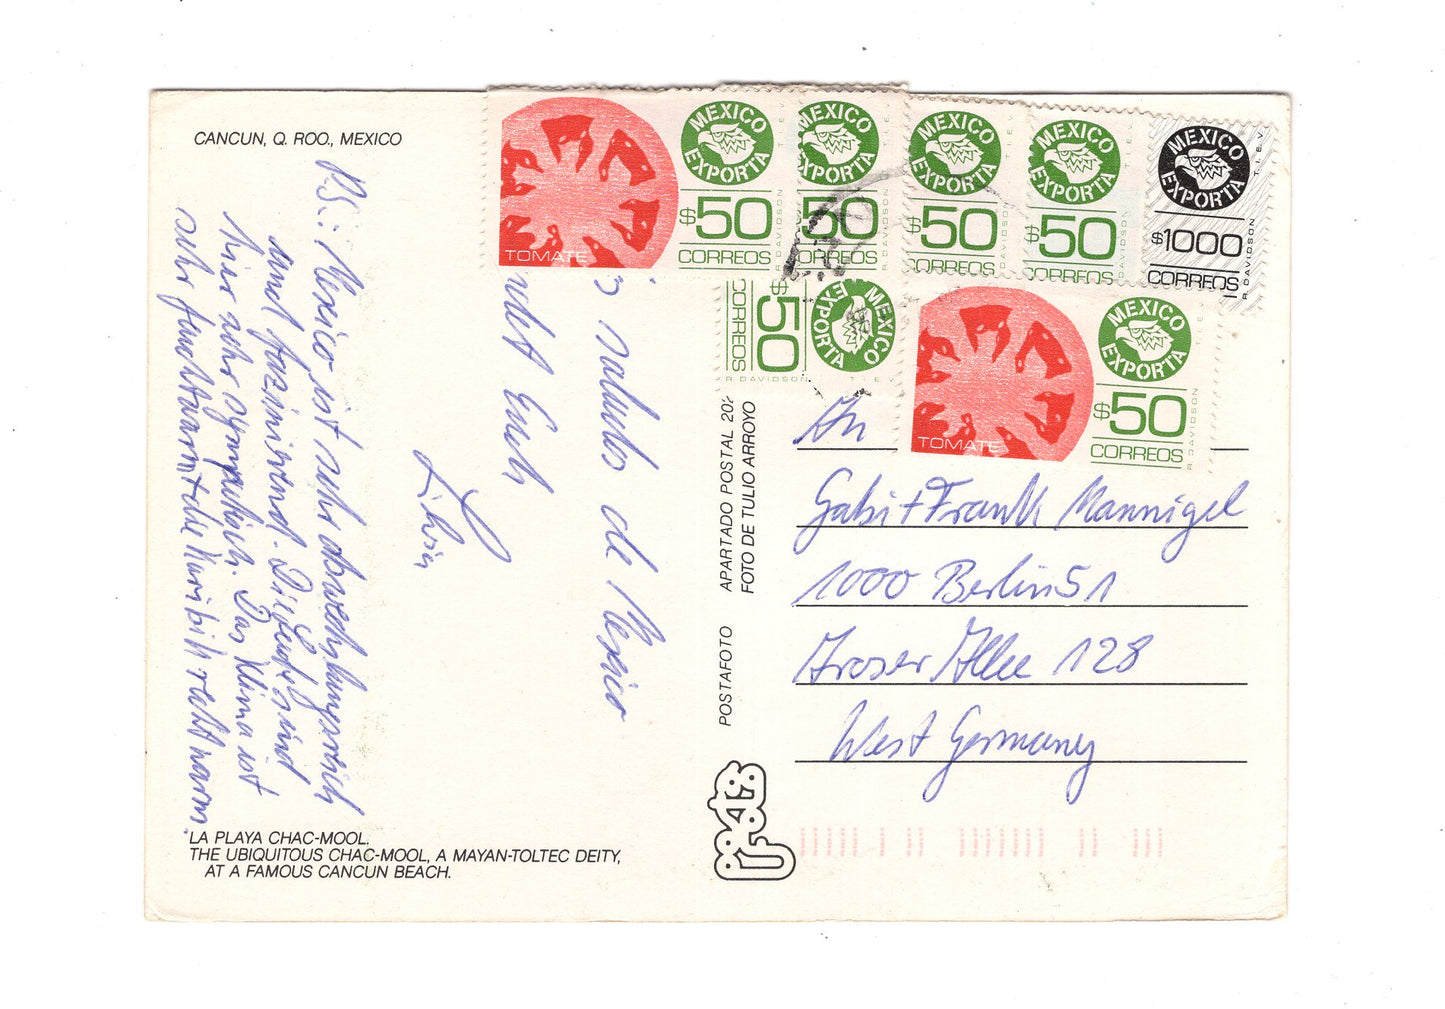 CANCUN, Q. ROO., MEXICO
saludos de Mexico
sendet Euch
Silvia
P.S.: Mexico ist sehr abwechslungsreich
und faszinierend. Die Leute sind
hier sehr sympathisch. Das Klima ist
sehr feuchtwarm + die Karibik recht warm.
LA PLAYA CHAC-MOOL.
THE UBIQUITOUS CHAC-MOOL, A MAYAN-TOLTEC DEITY,
AT A FAMOUS CANCUN BEACH.
POSTAFOTO APARTADO POSTAL 202
FOTO DE TULIO ARROYO
TOMATE
MEXICO EXPORTA
$50
CORREOS
R. DAVIDSON
T.I.E.V.
MEXICO EXPORTA
$50
CORREOS
R. DAVIDSON
MEXICO EXPORTA
$50
CORREOS
R. DAVIDSON
MEXICO EXPORTA
$50
CORREOS
R. DAVIDSON
MEXICO EXPORTA
$1000
CORREOS
R. DAVIDSON
T.I.E.V.
MEXICO EXPORTA
$50
CORREOS
R. DAVIDSON
T.I.E.V.
TOMATE
MEXICO EXPORTA
$50
CORREOS
R. DAVIDSON
An
Gabi + Frank Mannigel
1000 Berlin 51
Aroser Allee 128
West Germany